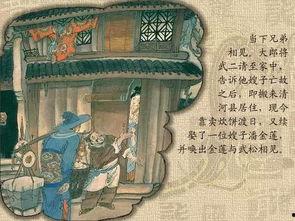 当下兄弟
相见，大郎将
武二请至家中，
告诉他嫂子亡故
之后，即搬来清
河县居住，现今
靠卖炊饼渡日，又续
娶了一位嫂子潘金莲，
并唤出金莲与武松相见。